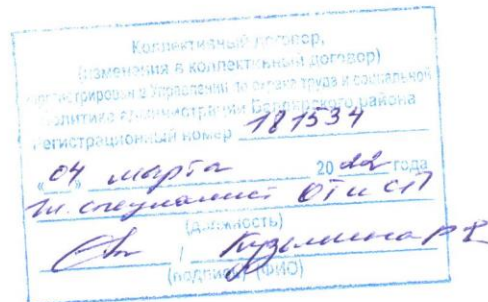 Коллективный договор,
(изменения в коллективный договор)
зарегистрирован в Управлении по охране труда и социальной
политике администрации Белоярского района
Регистрационный номер 181534
«04» марта 2022 года
гл. специалист ОТиСП
(должность)
/ Кузьмина Р
(подпись) (ФИО)